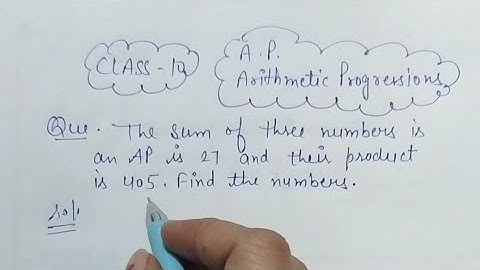 CLASS-10
A.P.
Arithmetic Progressions
Que. The sum of three numbers is
an AP is 27 and their product
is 405. Find the numbers.
Sol.